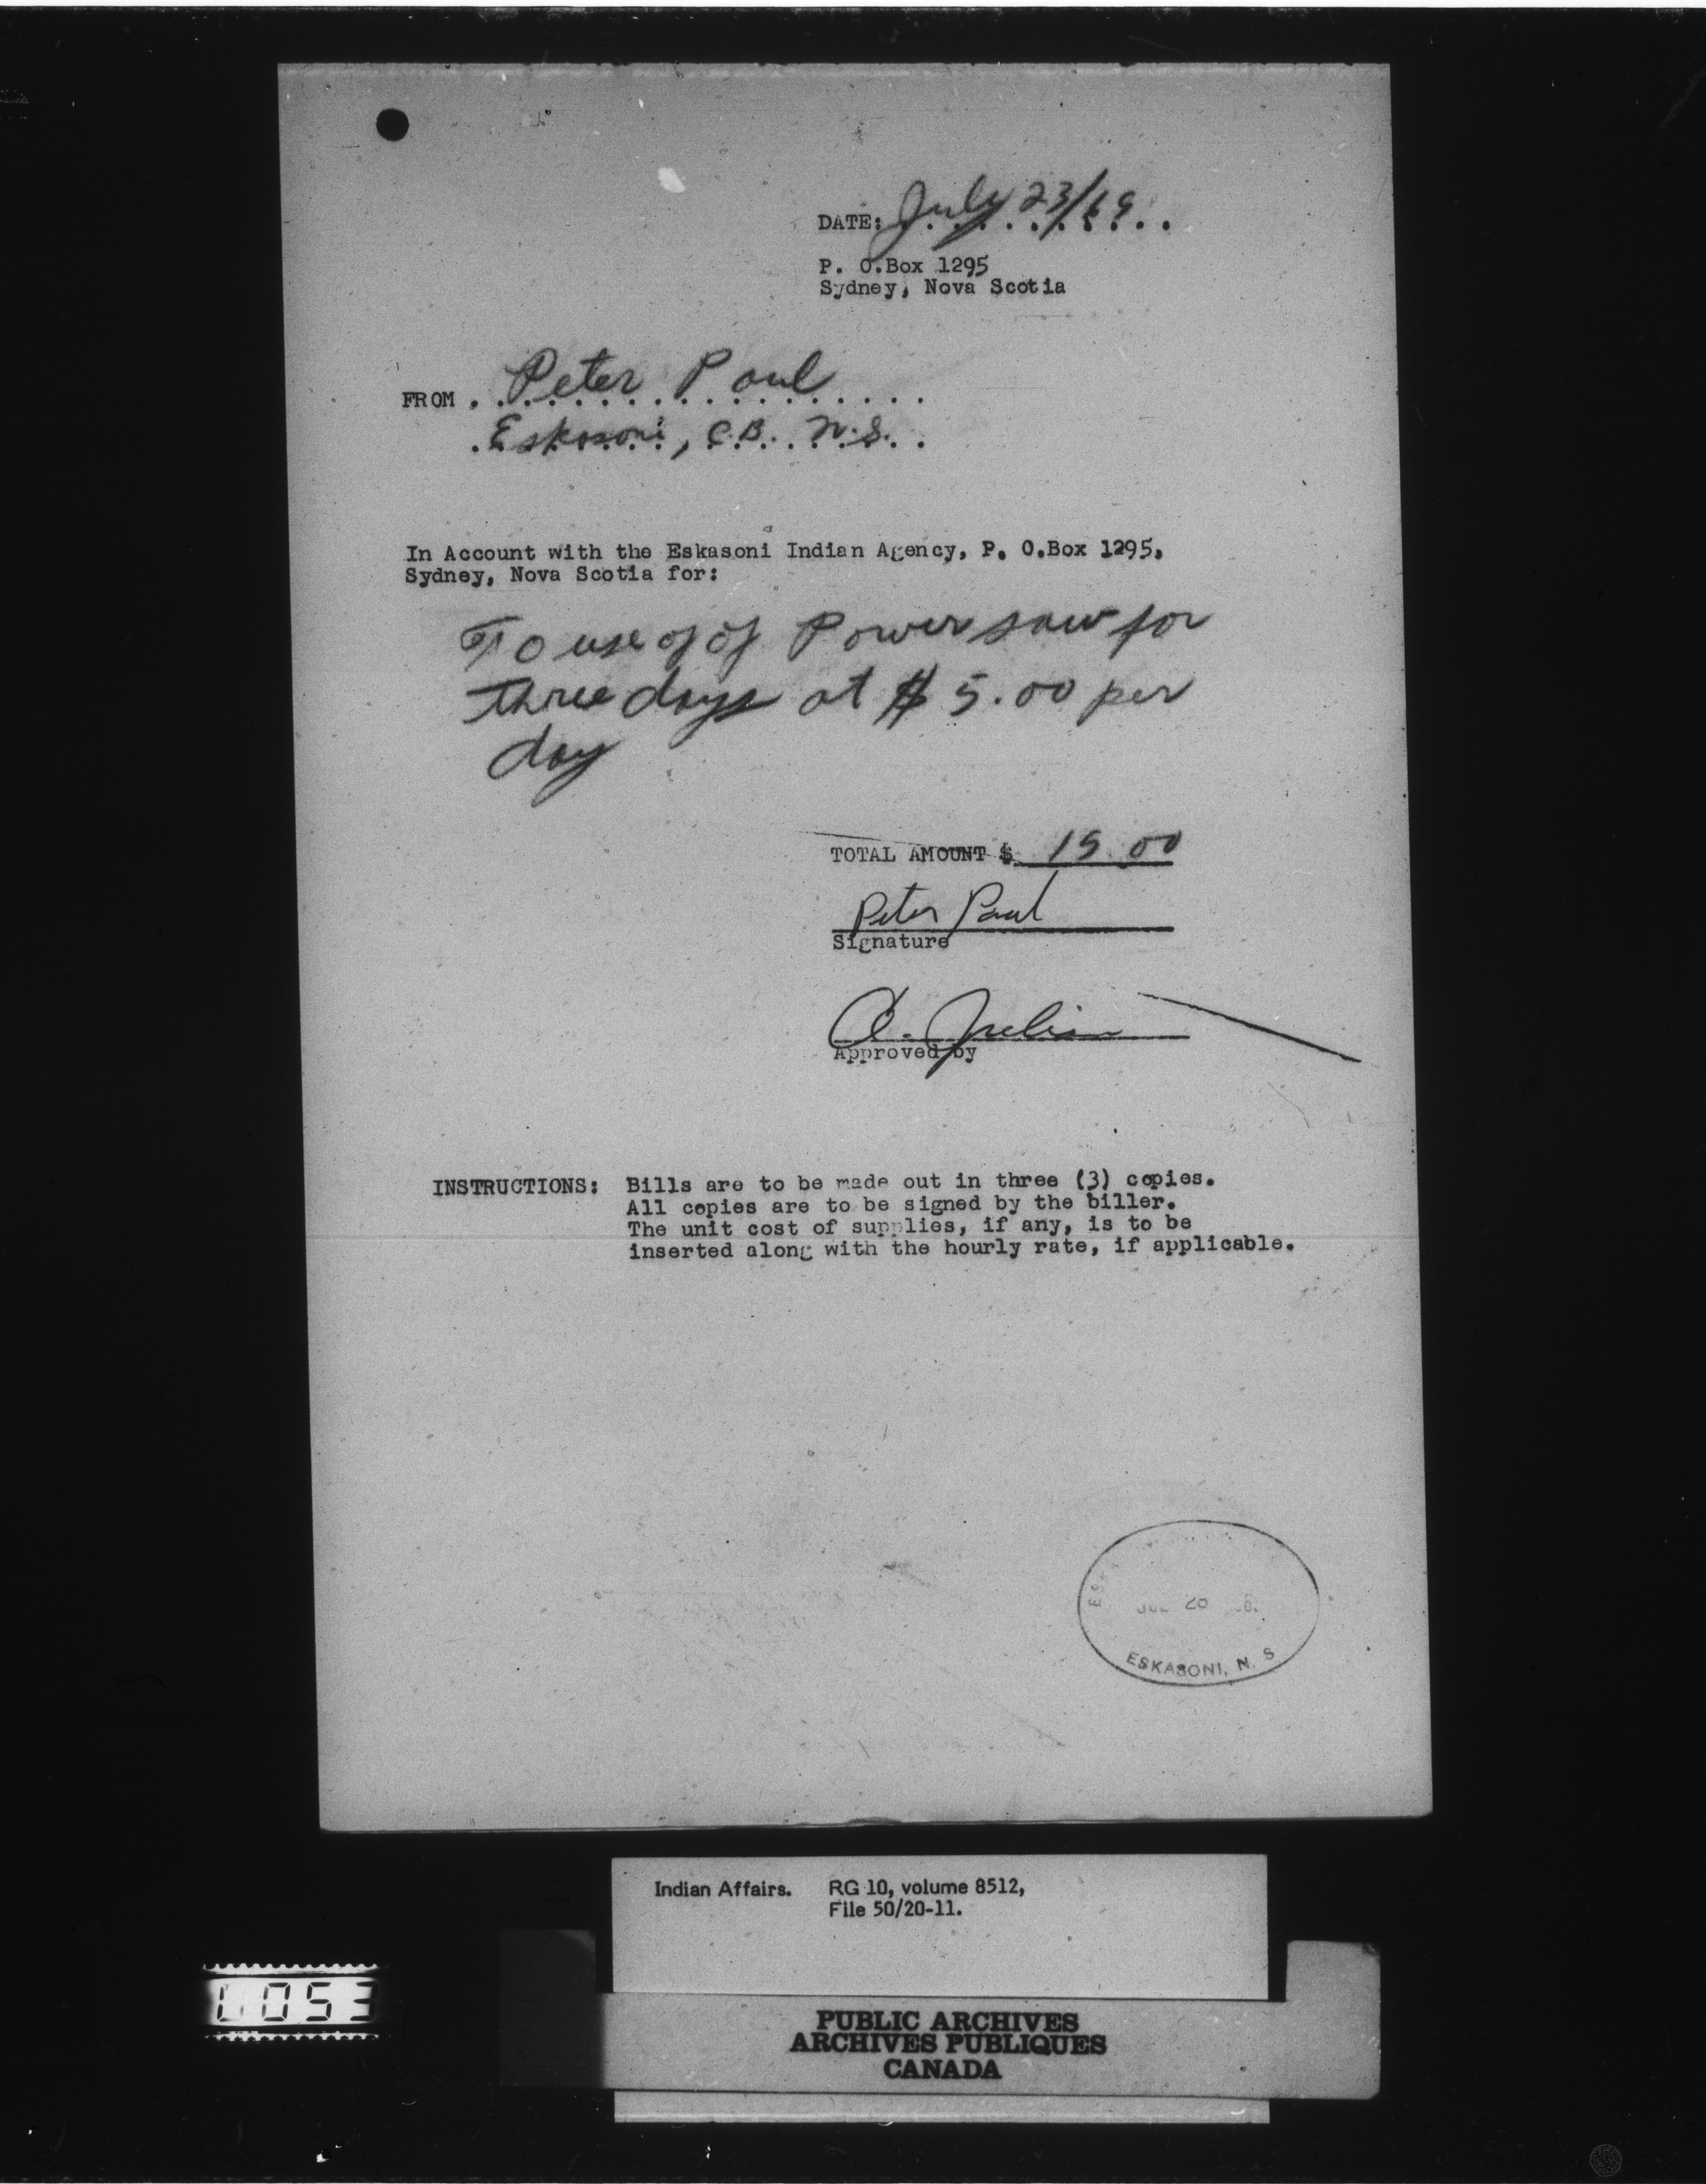 DATE: July 23/69
P. O.Box 1295
Sydney, Nova Scotia
FROM Peter Paul
Eskasoni, C.B. N.S.
In Account with the Eskasoni Indian Agency, P. O.Box 1295,
Sydney, Nova Scotia for:
To use of of Power saw for
three days at $ 5.00 per
day
TOTAL AMOUNT $ 15.00
Peter Paul
Signature
A. Julian
Approved by
INSTRUCTIONS: Bills are to be made out in three (3) copies.
All copies are to be signed by the biller.
The unit cost of supplies, if any, is to be
inserted along with the hourly rate, if applicable.
ESKASONI, N. S
Indian Affairs. RG 10, volume 8512,
File 50/20-11.
0053
PUBLIC ARCHIVES
ARCHIVES PUBLIQUES
CANADA